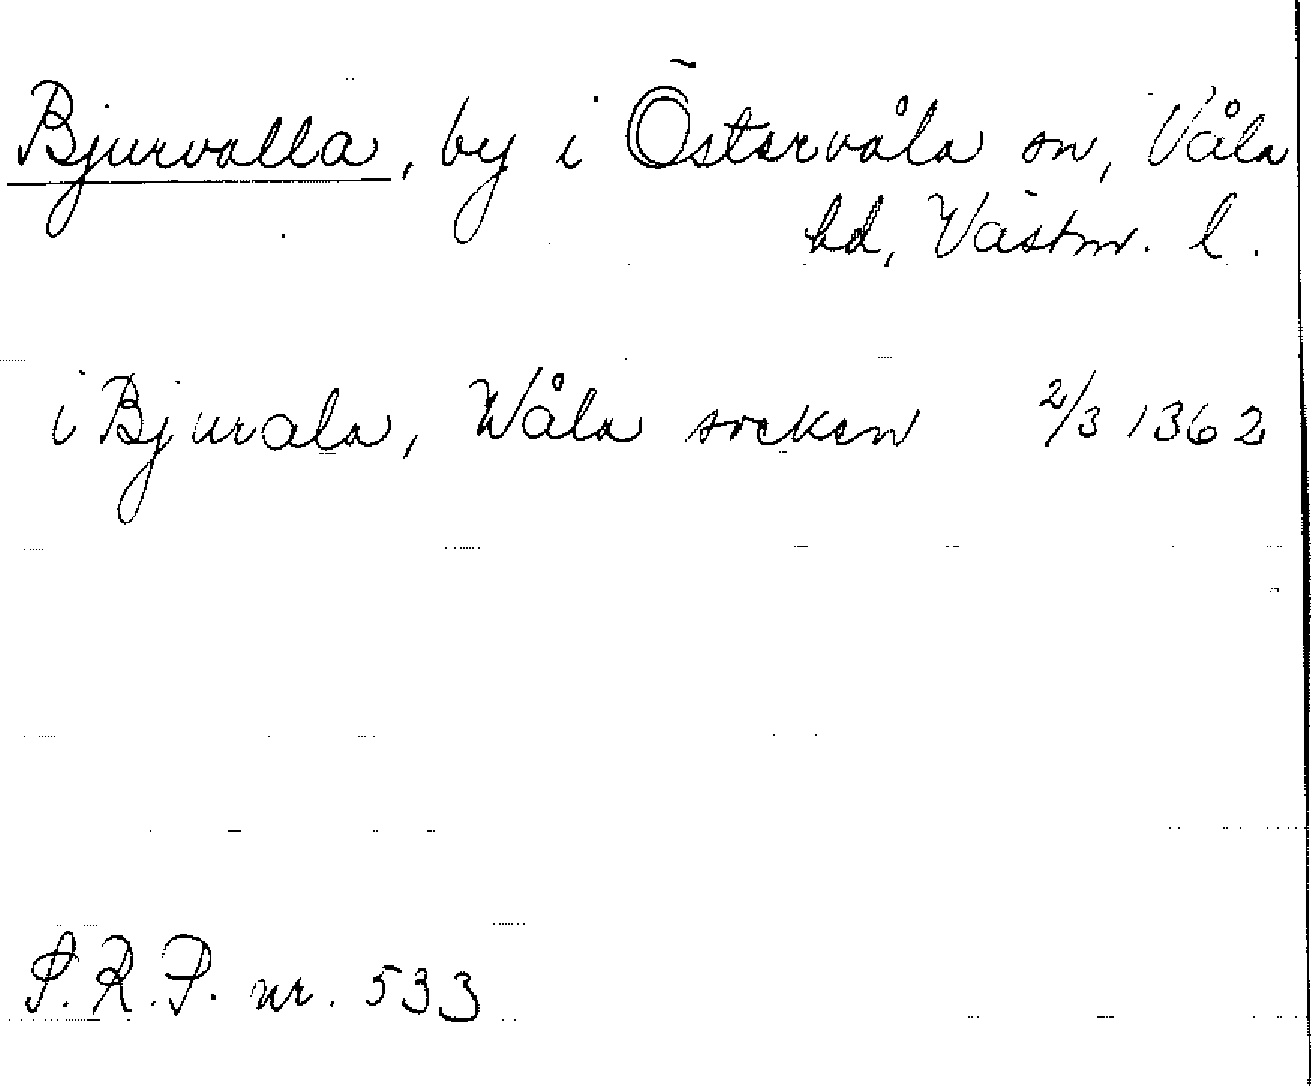 Bjurvalla, by i Östervåla sn, Våla
hd, Västm. l.
i Bjurala, Wåla socken 2/3 1362
S.R.P. nr. 533